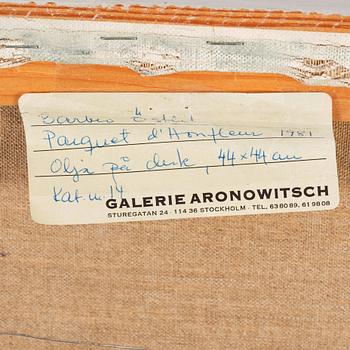 Barbro Östlihn
Parquet d'Honfleur 1981
Olja på duk, 44x44 cm
Kat. nr 14
GALERIE ARONOWITSCH
STUREGATAN 24 · 114 36 STOCKHOLM · TEL. 63 80 89, 61 98 08